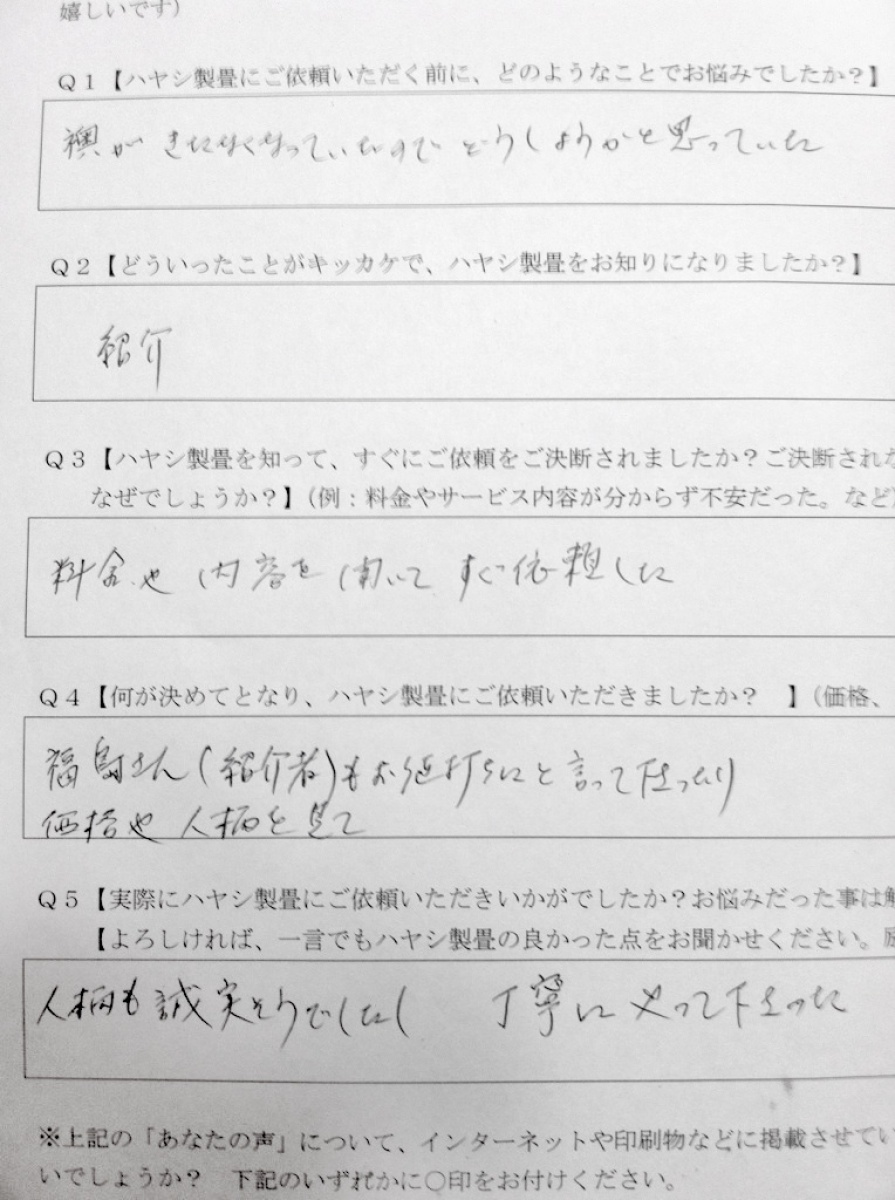 嬉しいです）
Ｑ１【ハヤシ製畳にご依頼いただく前に、どのようなことでお悩みでしたか？】
襖が きたなくなっていたので どうしようかと思っていた
Ｑ２【どういったことがキッカケで、ハヤシ製畳をお知りになりましたか？】
紹介
Ｑ３【ハヤシ製畳を知って、すぐにご依頼をご決断されましたか？ご決断されな
なぜでしょうか？】（例：料金やサービス内容が分からず不安だった。など）
料金や 内容を 聞いて すぐ依頼した
Ｑ４【何が決めてとなり、ハヤシ製畳にご依頼いただきましたか？ 】（価格、
福島さん（紹介者）もお値打ちにと言って下さったり
価格や 人柄を見て
Ｑ５【実際にハヤシ製畳にご依頼いただきいかがでしたか？お悩みだった事は解
【よろしければ、一言でもハヤシ製畳の良かった点をお聞かせください。
人柄も誠実そうでしたし 丁寧に やって下さった
※上記の「あなたの声」について、インターネットや印刷物などに掲載させてい
いでしょうか？ 下記のいずれかに○印をお付けください。